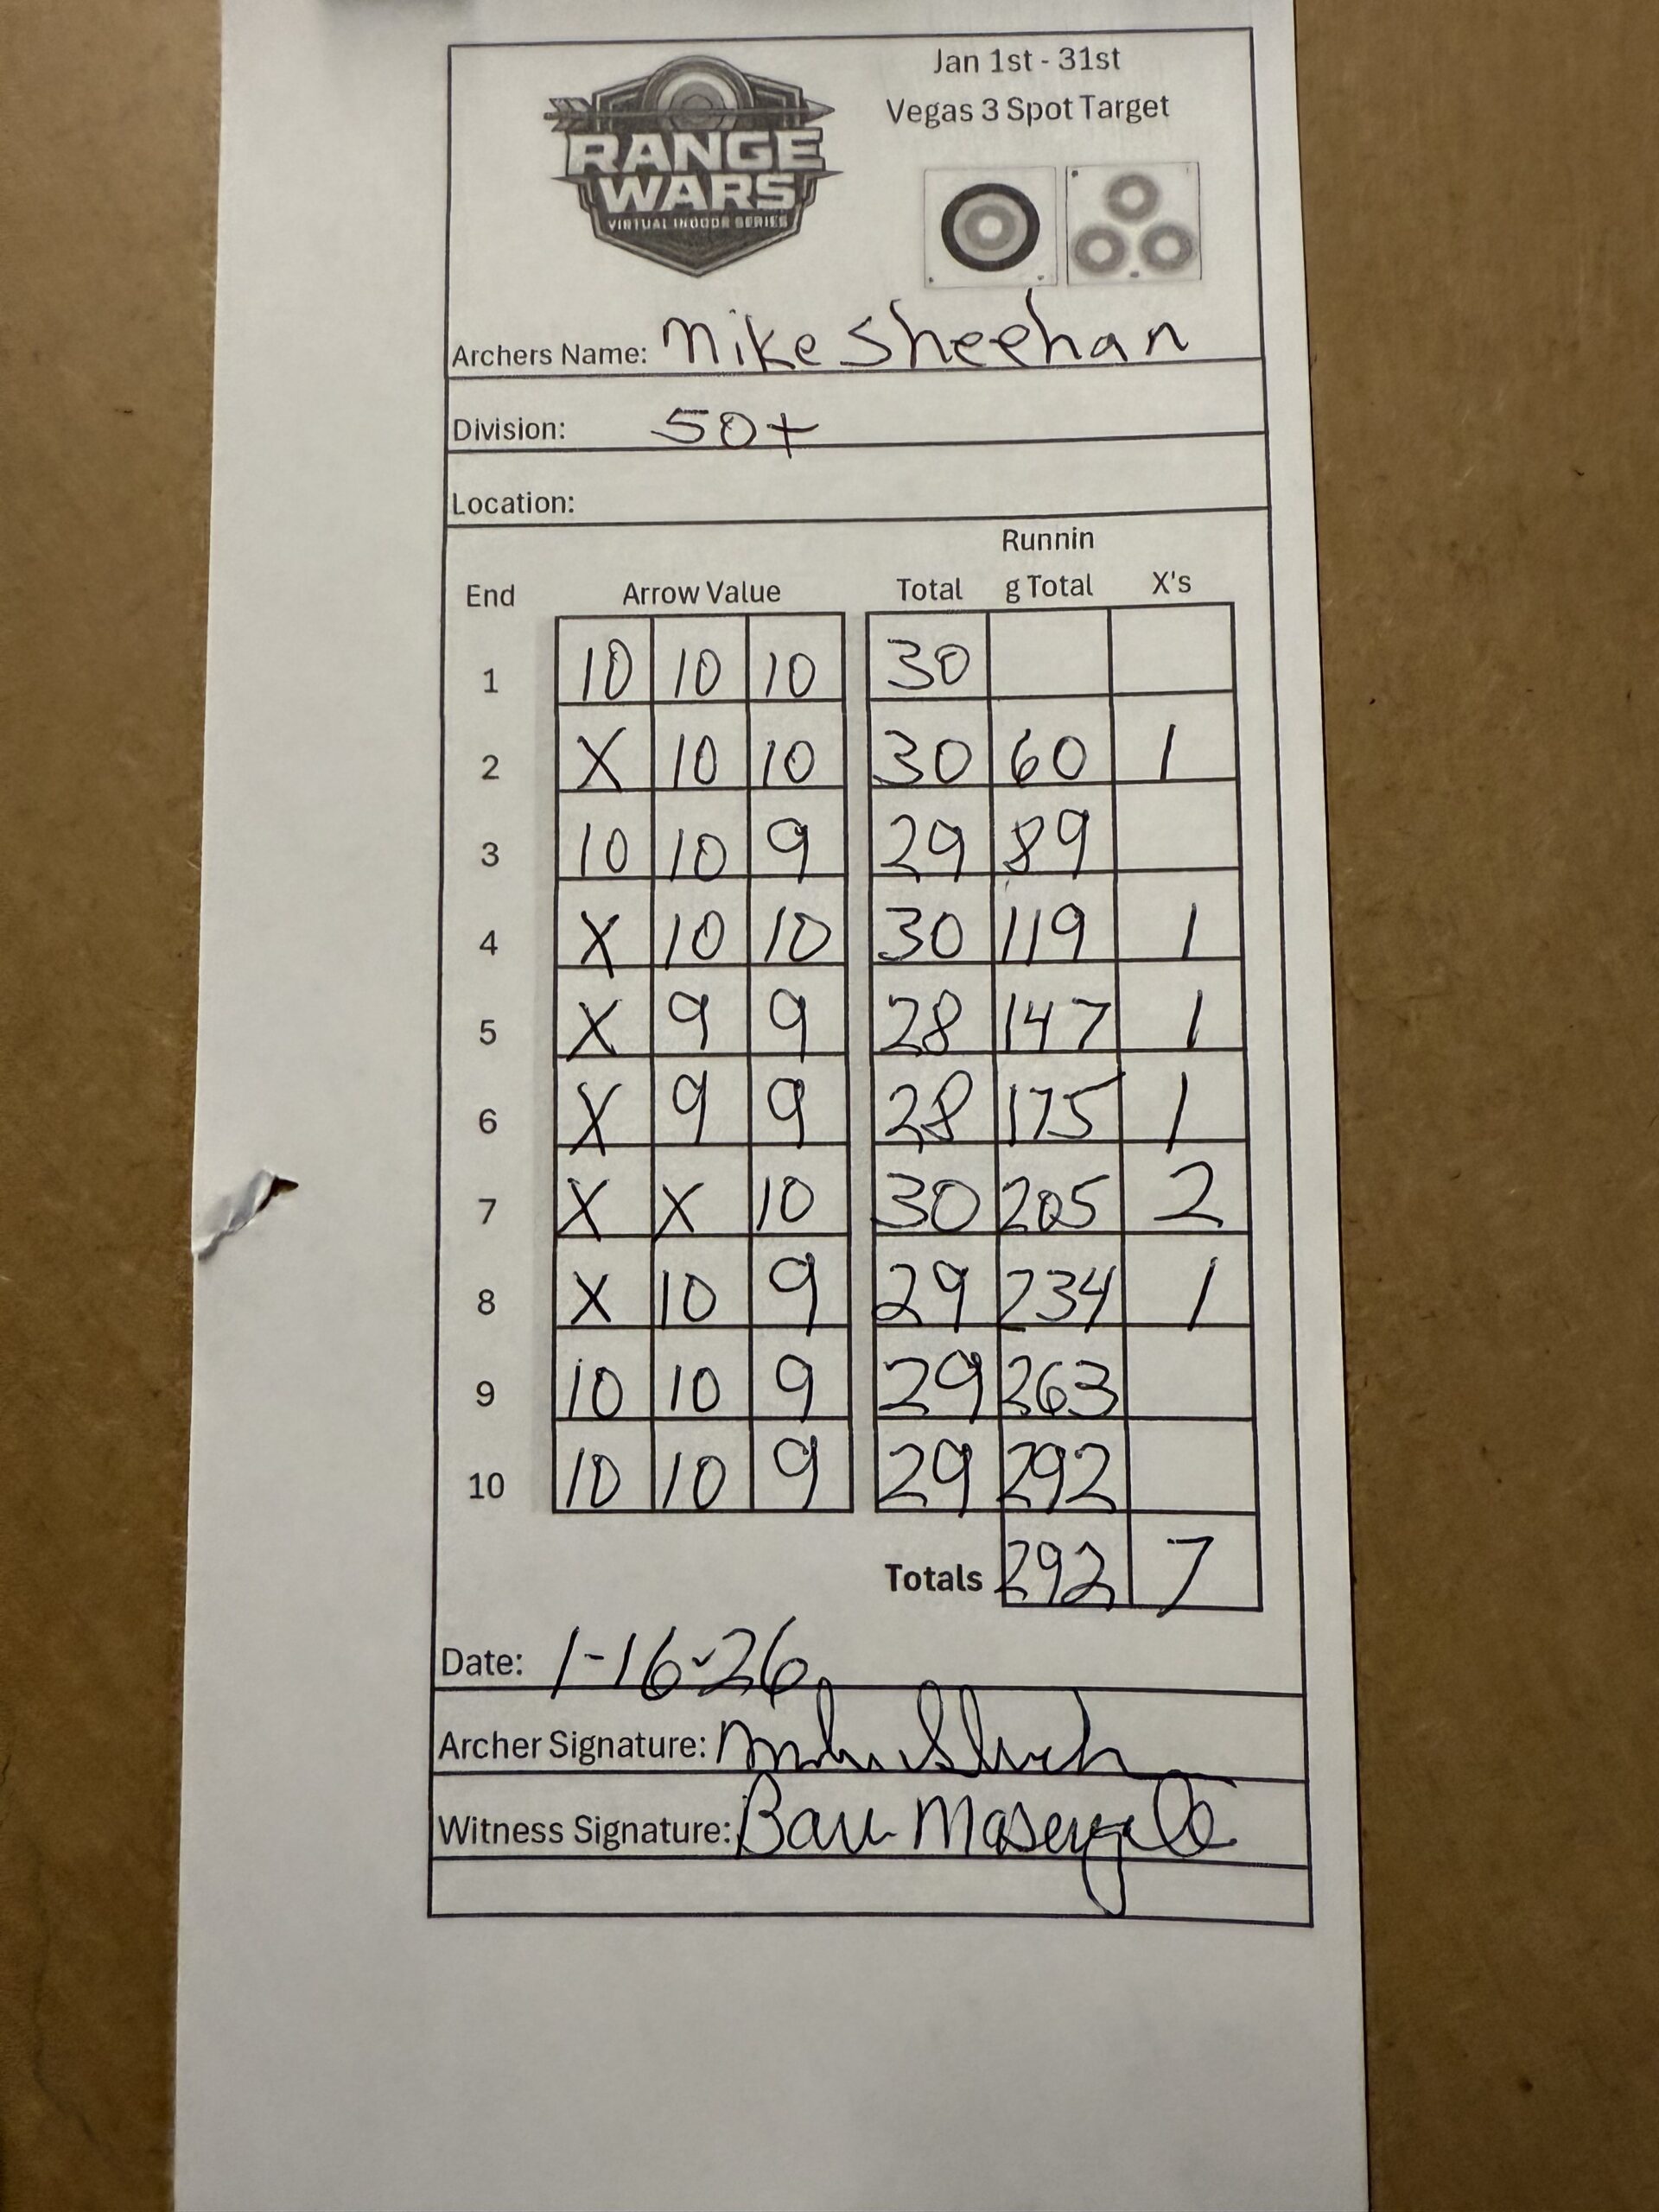 Jan 1st - 31st
Vegas 3 Spot Target
RANGE
WARS
VIRTUAL INDOOR SERIES
Archers Name: Mike Sheehan
Division: 50+
Location:
Runnin
End Arrow Value Total g Total X's
1 10 10 10 30
2 X 10 10 30 60 1
3 10 10 9 29 89
4 X 10 10 30 119 1
5 X 9 9 28 147 1
6 X 9 9 28 175 1
7 X X 10 30 205 2
8 X 10 9 29 234 1
9 10 10 9 29 263
10 10 10 9 29 292
Totals 292 7
Date: 1-16-26
Archer Signature:
Witness Signature: